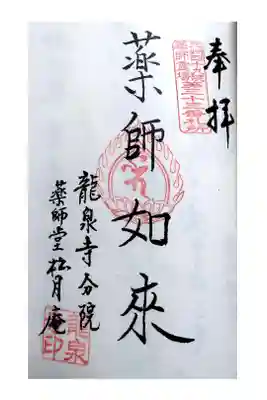 奉拝
薬師如來
龍泉寺分院
薬師堂松月庵
龍泉